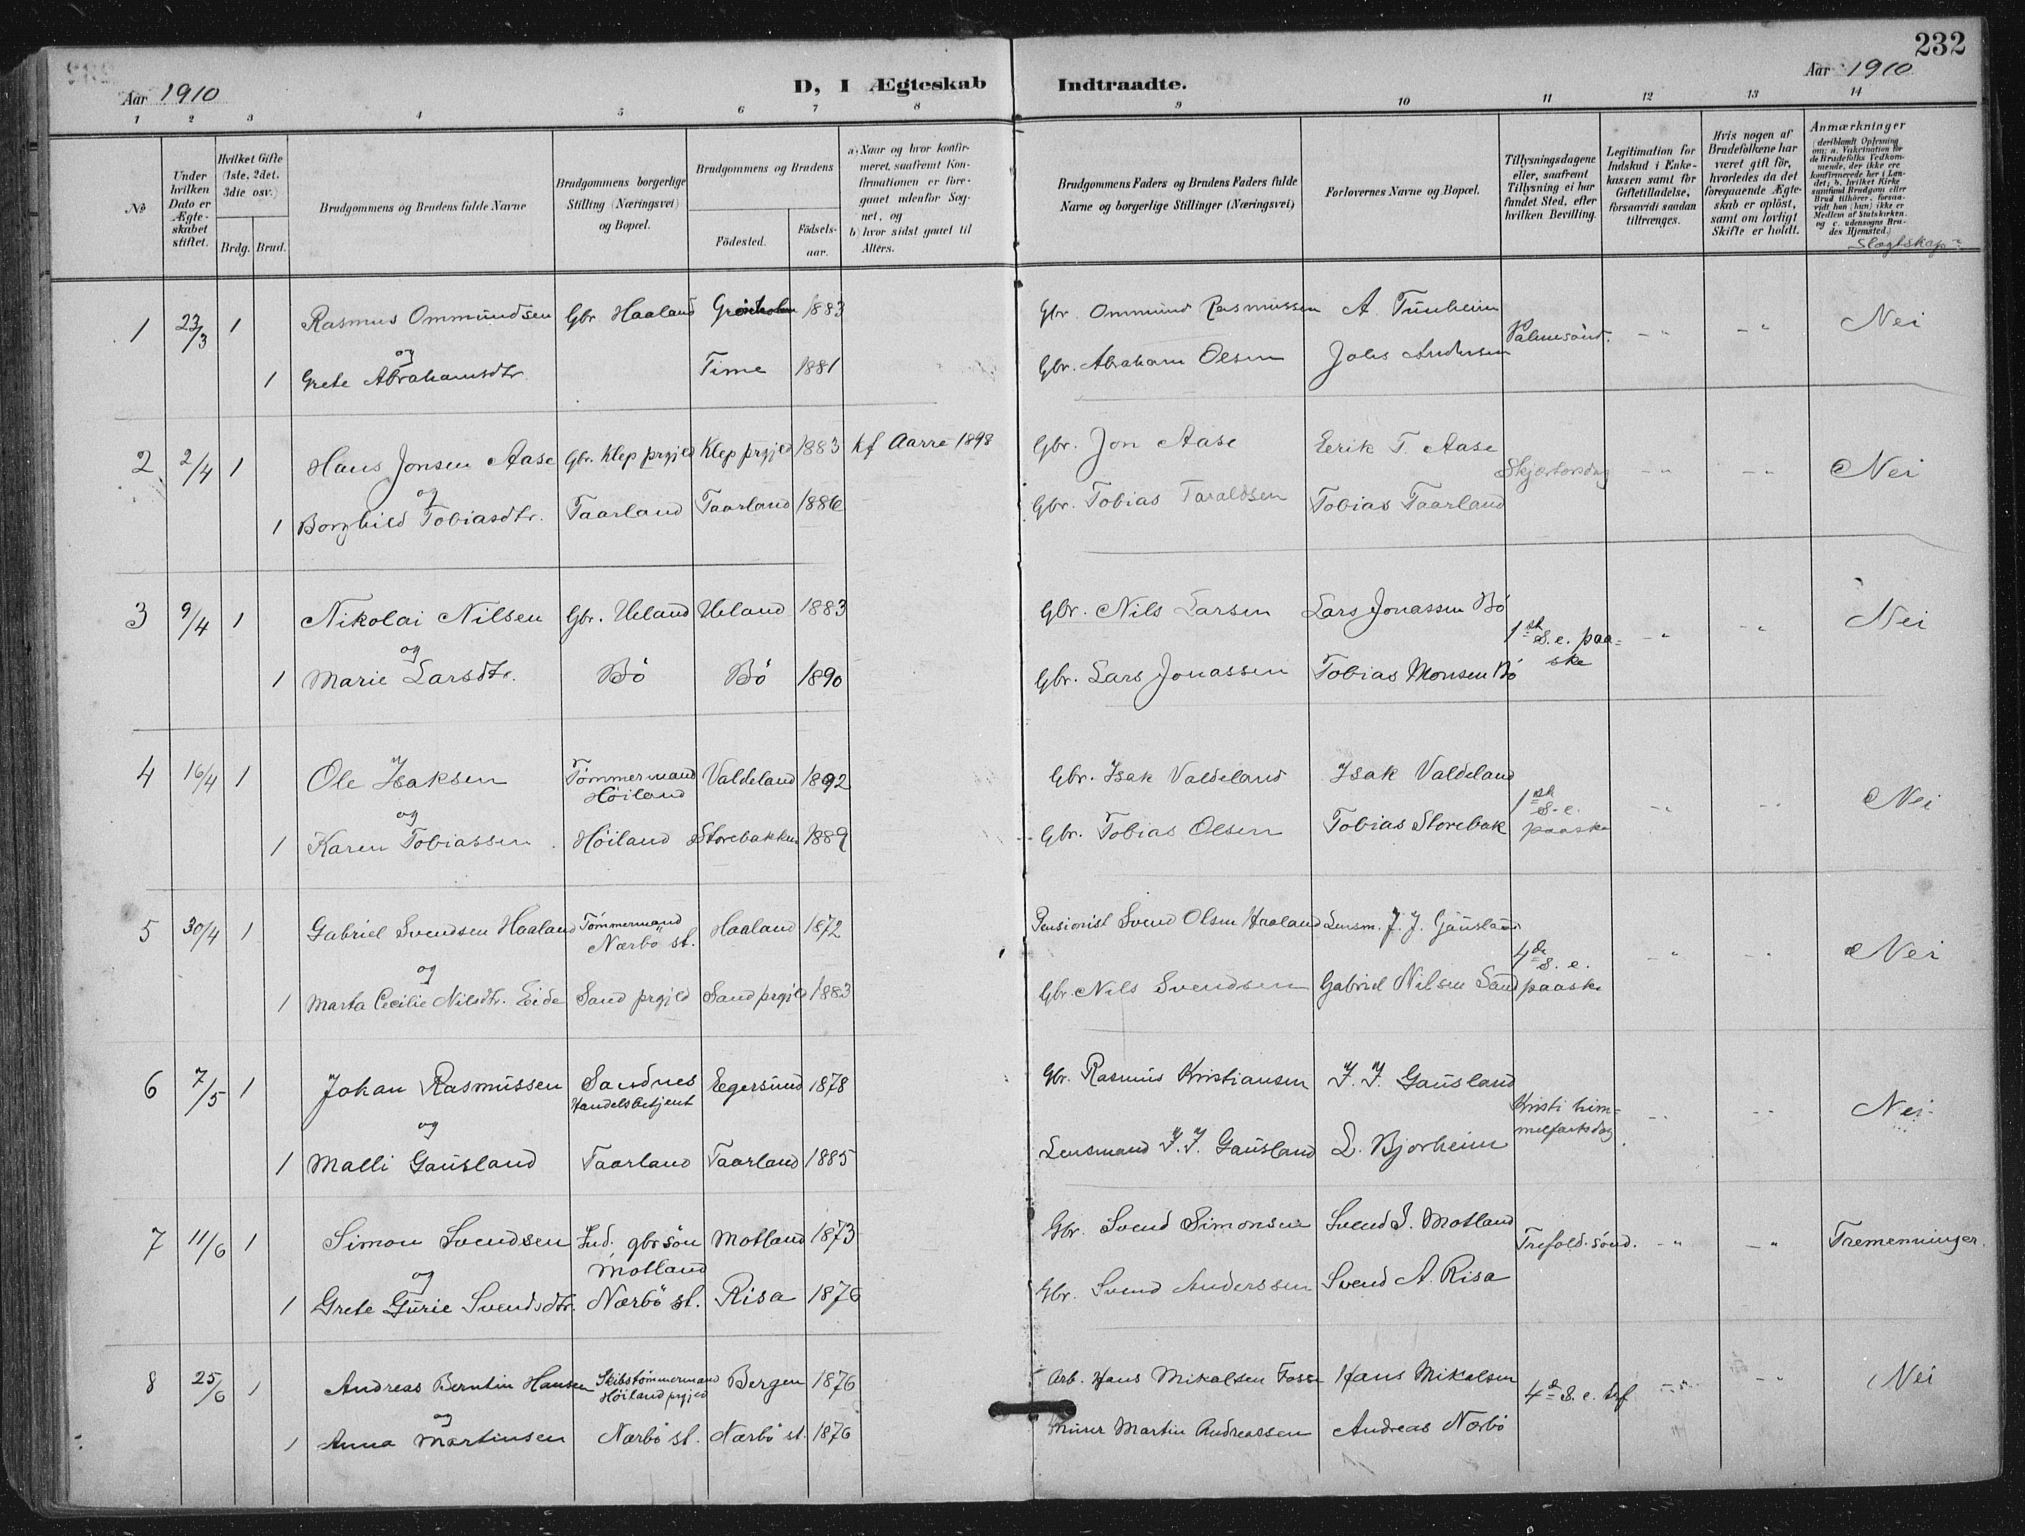 232
Aar 1910
D, I Ægteskab Indtraadte.
Aar 1910
1 2 3 4 5 6 7 8 9 10 11 12 13 14
№
Under hvilken Dato er Ægteskabet stiftet.
Hvilket Gifte (1ste, 2det, 3die osv.)
Brdg. Brud.
Brudgommens og Brudens fulde Navne
Brudgommens borgerlige Stilling (Næringsvei) og Bopæl.
Brudgommens og Brudens
Födested.
Födsels-aar.
a) Naar og hvor konfir-
meret, saafremt Kon-
firmationen er fore-
gaaet udenfor Sog-
net, og
b) hvor sidst gaaet til
Alters.
Brudgommens Faders og Brudens Faders fulde
Navne og borgerlige Stillinger (Næringsvei)
Forlovernes Navne og Bopæl.
Tillysningsdagene
eller, saafremt
Tillysning ei har
fundet Sted, efter
hvilken Bevilling.
Legitimation for
Indskud i Enke-
kassen samt for
Giftetilladelse,
forsaavidt saadan
tiltrænges.
Hvis nogen af
Brudefolkene har
været gift för,
hvorledes da det
foregaaende Ægte-
skab er oplöst,
samt om lovligt
Skifte er holdt.
Anmærkninger
(deriblandt Oplysning
om: a. Vakcination for
de Brudefolks Vedkom-
mende, der ikke ere
konfirmerede her i Lan-
det; b. hvilket Kirke
samfund Brudgom eller
Brud tilhörer, forsaa-
vidt han (hun) ikke er
Medlem af Statskirken.
og c. udensogns Bru-
des Hjemsted.)
Slægtskap
1 23/3 1 Rasmus Ommundsen Gbr. Haaland 1883 Gbr. Ommund Rasmussen A. Tunheim Palmesönd. -"- -"- Nei
og
1 Grete Abrahamsdtr. Time 1881 Gbr. Abraham Olsen Andersen
2 2/4 1 Hans Jonsen Aase Gbr. Klep prgjld Klep prgjld 1883 kf Aarre 1898 Gbr. Jon Aase Eerik T. Aase Skjærtorsdag -"- -"- Nei
og
1 Borghild Tobiasdtr. Taarland Taarland 1886 Gbr. Tobias Taraldsen Tobias Taarland
3 9/4 1 Nikolai Nilsen Gbr. Ueland Ueland 1883 Gbr. Nils Larsen Lars Jonassen Bö 1st S. e. paa= -"- -"- Nei
og ske
1 Marie Larsdtr. Bö Bö 1890 Gbr. Lars Jonassen Tobias Monsen Bö
4 16/4 1 Ole Isaksen Tømmermand Valdeland 1892 Gbr. Isak Valdeland Isak Valdeland 1st S. e. -"- -"- Nei
Høiland
og paaske
1 Karen Tobiassen Höiland Storebakken 1889 Gbr. Tobias Olsen Tobias Storebak
5 30/4 1 Gabriel Svendsen Haaland Tømmermand Haaland 1872 Pensionist Svend Olsen Haaland Lensm. J. J. Gausland 4de S. e. -"- -"- Nei
Nærbö st.
og
1 Marta Cecilie Nilsdtr. Eide Sand prgjld Sand prgjld 1883 Gbr. Nils Svendsen Gabriel Nilsen Sand paaske
6 7/5 1 Johan Rasmussen Sandnes Egersund 1878 Gbr. Rasmus Kristiansen J. J. Gausland Kristi him= -"- -"- Nei
Handelsbetjent
og melfartsdag
1 Malli Gausland Taarland Taarland 1885 Lensmand J. J. Gausland L. Bjorheim
7 11/6 1 Simon Svendsen Ind. gbrsön Motland 1873 Gbr. Svend Simonsen Svend S. Motland Trefold. sönd. -"- -"- Tremenninger.
Motland
og
1 Grete Gurie Svendsdtr. Nærbö st. Risa 1876 Gbr. Svend Anderssen Svend A. Risa
8 25/6 1 Andreas Berntin Hansen Skibstömmermand Bergen 1876 Arb. Hans Mikalsen Fosse Hans Mikalsen 4de S. e. tref -"- -"- Nei
Höiland prgjld
og
1 Anna Martinsen Nærbö st. Nærbö st. 1876 Murer Martin Andreassen Andreas Nærbö